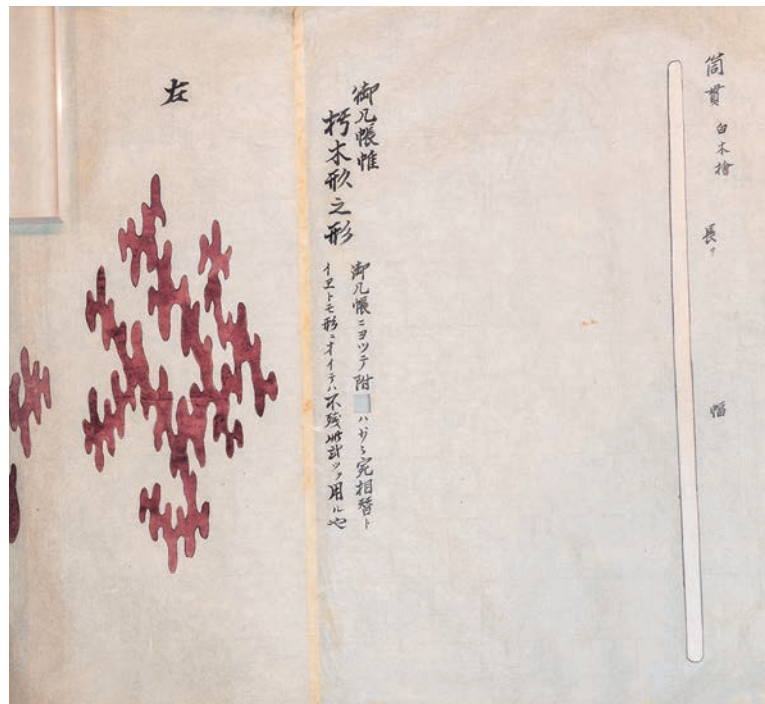 筒貫 白木檜 長サ 幅
御几帳帷
朽木形之形
御几帳ニヨツテ附 ハ 少シ宛相替ト
イヱトモ形ニオイテハ不残此計ヲ用ル也
左